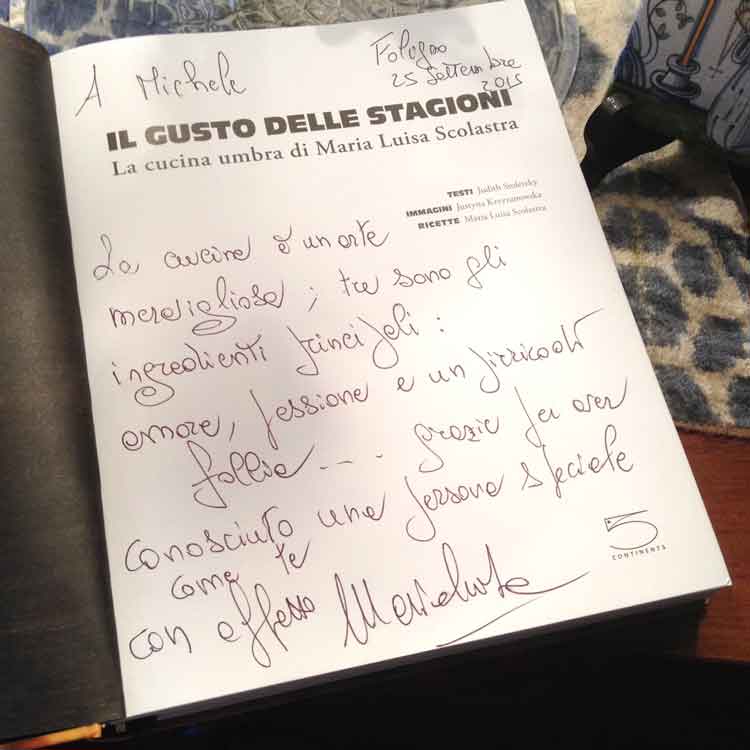 A Michele
Foligno
25 Settembre
2015
IL GUSTO DELLE STAGIONI
La cucina umbra di Maria Luisa Scolastra
TESTI Judith Stoletzky
IMMAGINI Justyna Krzyzanowska
RICETTE Maria Luisa Scolastra
La cucina è un arte
meravigliosa; tre sono gli
ingredienti principali:
amore, passione e un pizzico di
follia.... grazie per aver
conosciuto una persona speciale
come te
con affetto Marialuisa
5
CONTINENTS